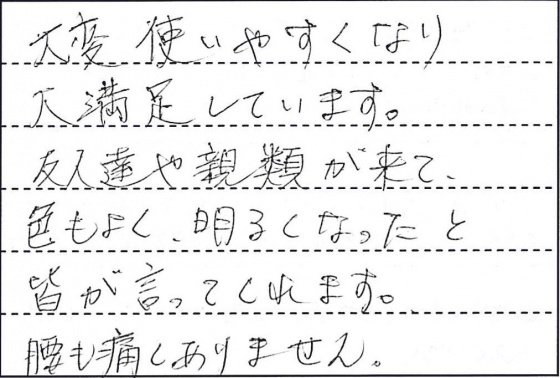 大変使いやすくなり
大満足しています。
友人達や親類が来て、
色もよく、明るくなったと
皆が言ってくれます。
腰も痛くありません。